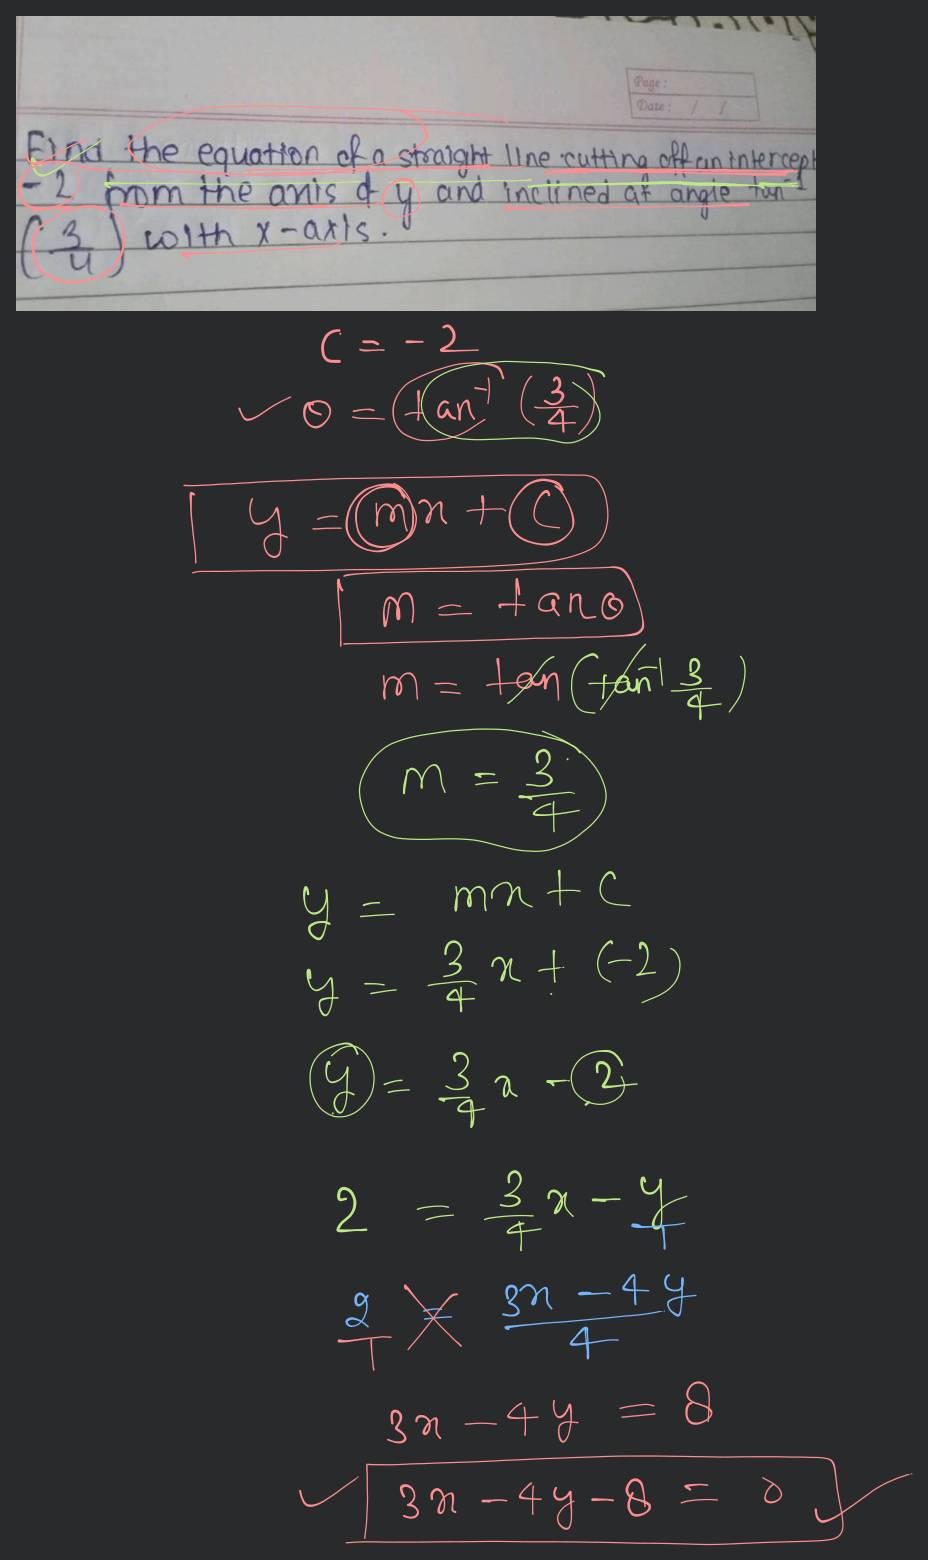 Page :
Date : / /
Find the equation of a straight line cutting off an intercept
-2 from the axis of y and inclined at angle tan⁻¹
(3/4) with x-axis.
C = -2
✓ θ = tan⁻¹ (3/4)
y = mx + C
m = tanθ
m = tan (tan⁻¹ 3/4)
m = 3/4
y = mx + C
y = 3/4 x + (-2)
y = 3/4 x - 2
2 = 3/4 x - y/1
2/1 = (3x - 4y)/4
3x - 4y = 8
✓ 3x - 4y - 8 = 0 ✓